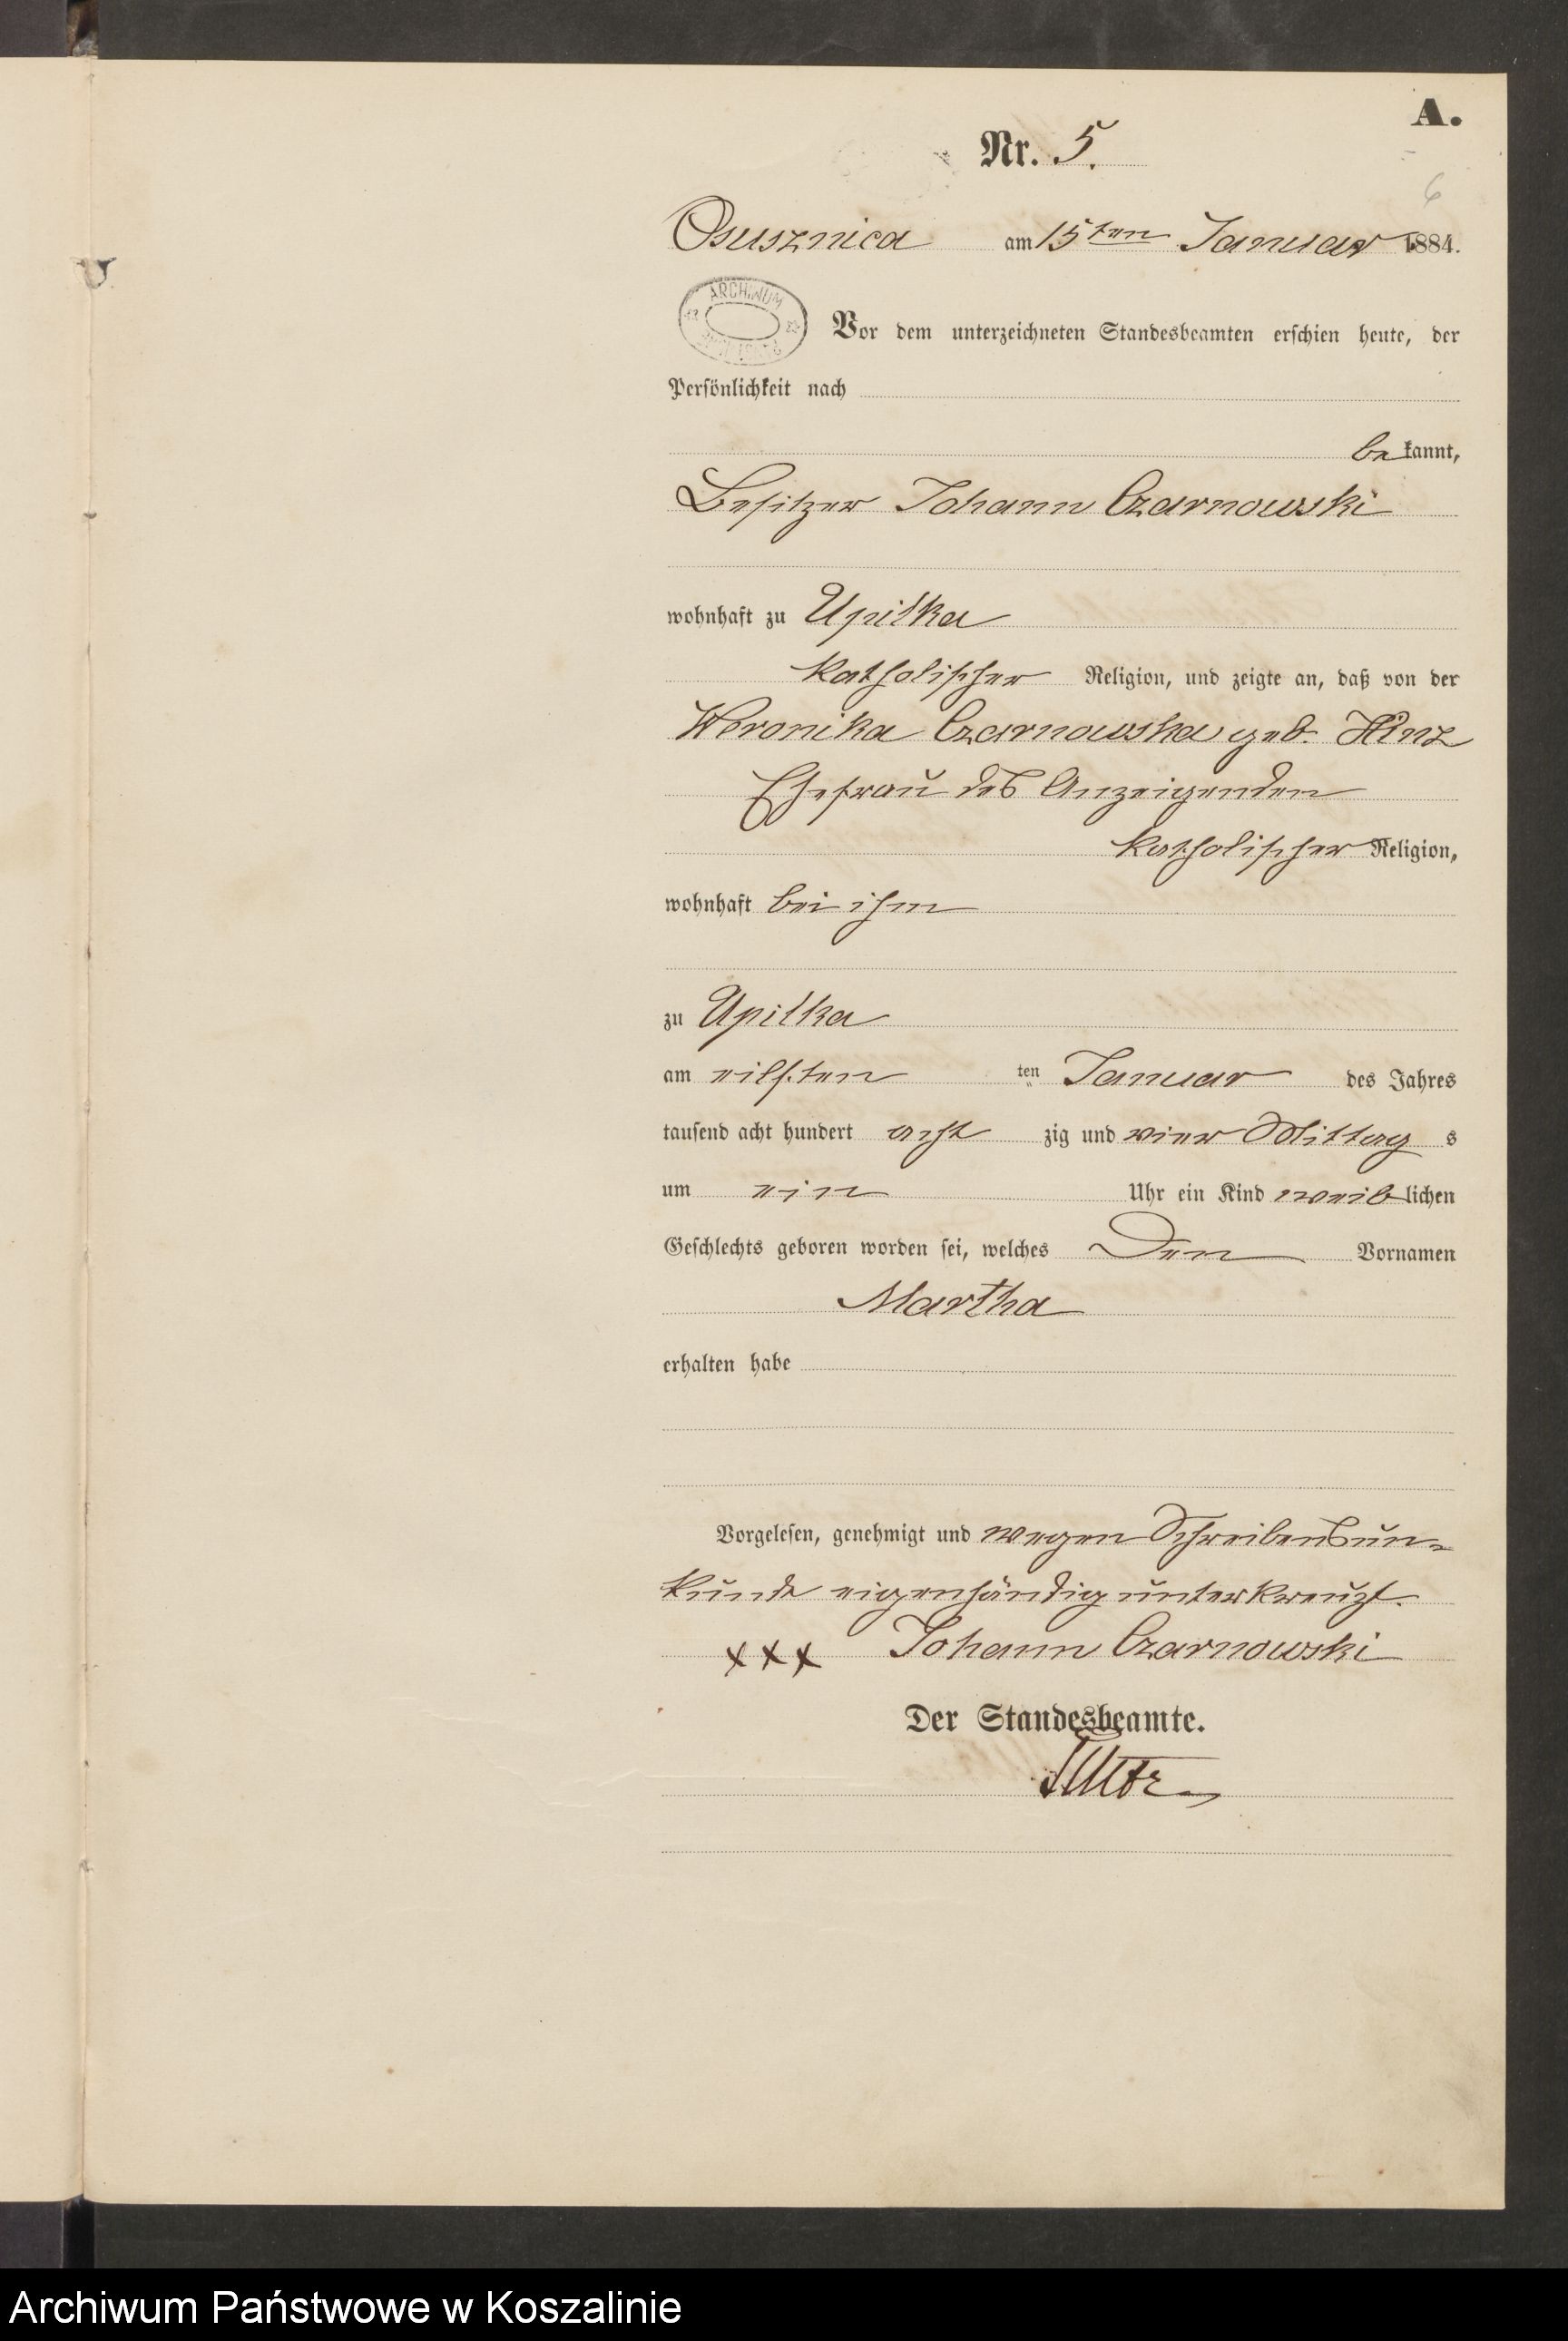 A.
Nr. 5.
6
Osusznica am 15ten Januar 1884.
ARCHIWUM
Vor dem unterzeichneten Standesbeamten erschien heute, der
Persönlichkeit nach
be kannt,
Besitzer Johann Czarnowski
wohnhaft zu Upilka
katholischer Religion, und zeigte an, daß von der
Weronika Czarnowska geb. Hinz
Ehefrau des Anzeigenden
katholischer Religion,
wohnhaft bei ihm
zu Upilka
am eilften ten Januar des Jahres
tausend acht hundert acht zig und vier Mittag s
um ein Uhr ein Kind weib lichen
Geschlechts geboren worden sei, welches den Vornamen
Martha
erhalten habe
Vorgelesen, genehmigt und wegen Schreibensun-
kunde eigenhändig unterkreuzt.
xxx Johann Czarnowski
Der Standesbeamte.
Archiwum Państwowe w Koszalinie